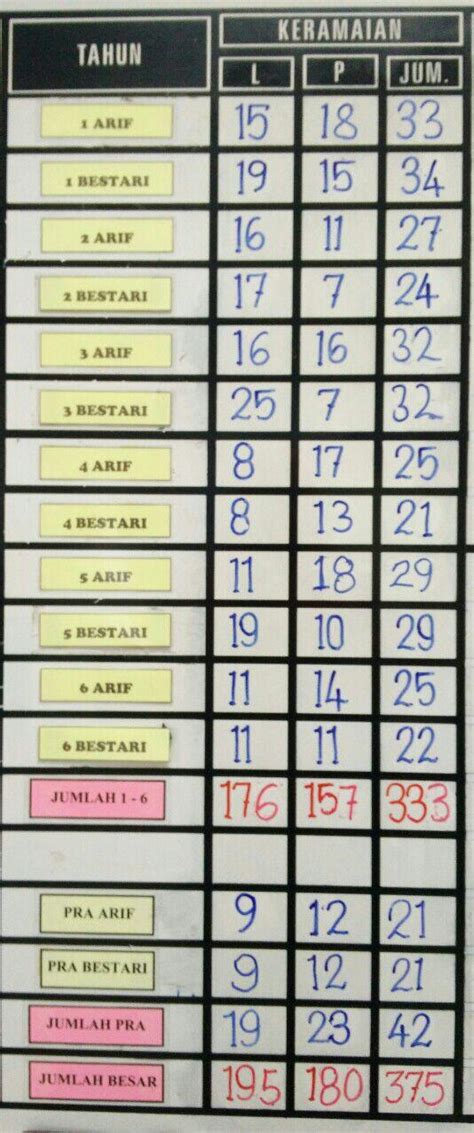 TAHUN KERAMAIAN
L P JUM.
1 ARIF 15 18 33
1 BESTARI 19 15 34
2 ARIF 16 11 27
2 BESTARI 17 7 24
3 ARIF 16 16 32
3 BESTARI 25 7 32
4 ARIF 8 17 25
4 BESTARI 8 13 21
5 ARIF 11 18 29
5 BESTARI 19 10 29
6 ARIF 11 14 25
6 BESTARI 11 11 22
JUMLAH 1 - 6 176 157 333
PRA ARIF 9 12 21
PRA BESTARI 9 12 21
JUMLAH PRA 19 23 42
JUMLAH BESAR 195 180 375